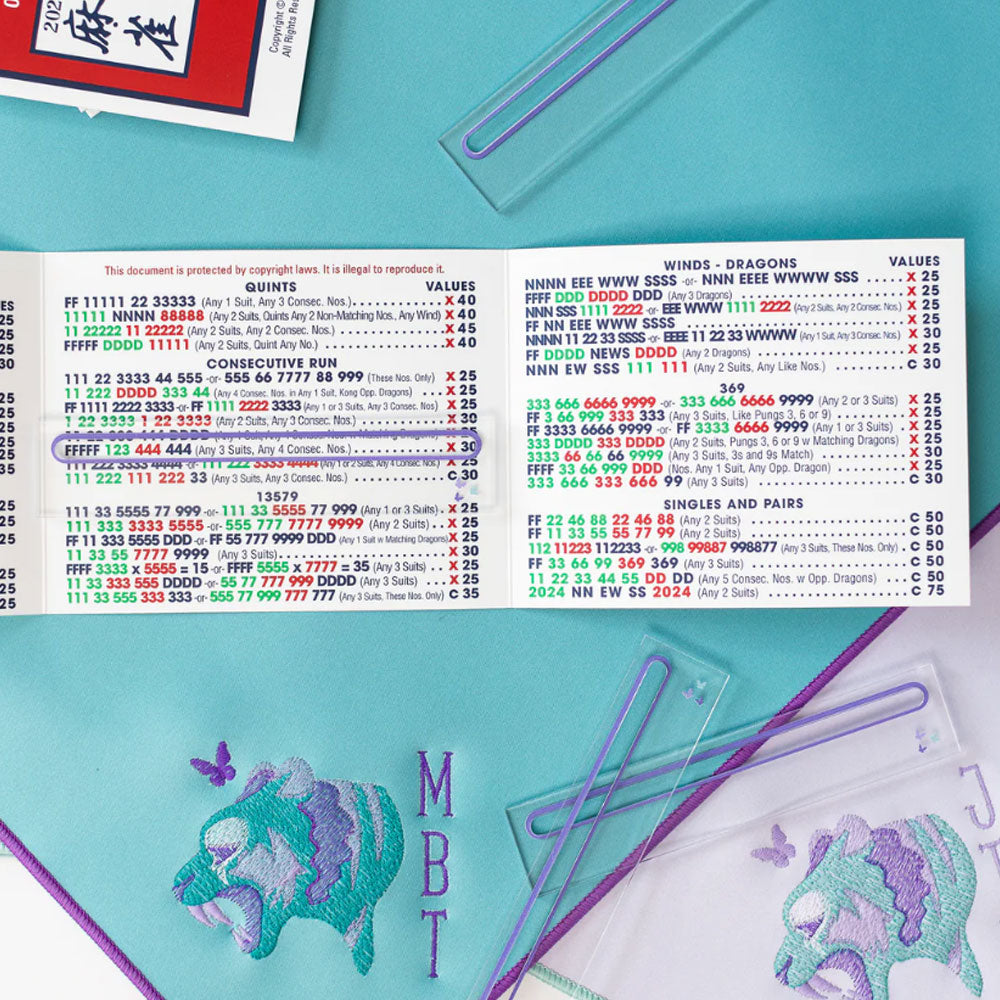 202
麻雀
Copyright ©
All Rights Res
This document is protected by copyright laws. It is illegal to reproduce it.
QUINTS VALUES
FF 11111 22 33333 (Any 1 Suit, Any 3 Consec. Nos.) X 40
11111 NNNN 88888 (Any 2 Suits, Quints Any 2 Non-Matching Nos., Any Wind) X 40
11 22222 11 22222 (Any 2 Suits, Any 2 Consec. Nos.) X 45
FFFFF DDDD 11111 (Any 2 Suits, Quint Any No.) X 40
CONSECUTIVE RUN
111 22 3333 44 555 -or- 555 66 7777 88 999 (These Nos. Only) X 25
11 222 DDDD 333 44 (Any 4 Consec. Nos. in Any 1 Suit, Kong Opp. Dragons) X 25
FF 1111 2222 3333 -or- FF 1111 2222 3333 (Any 1 or 3 Suits, Any 3 Consec. Nos) X 25
1 22 3333 1 22 3333 (Any 2 Suits, Any 3 Consec. Nos.) X 25
FFFFF 123 444 444 (Any 3 Suits, Any 4 Consec. Nos.) X 30
111 222 3333 4444 -or- 111 222 3333 4444 (Any 1 or 2 Suits, Any 4 Consec. Nos) X 25
111 222 111 222 33 (Any 3 Suits, Any 3 Consec. Nos.) C 30
13579
111 33 5555 77 999 -or- 111 33 5555 77 999 (Any 1 or 3 Suits) X 25
111 333 3333 5555 -or- 555 777 7777 9999 (Any 2 Suits) X 25
FF 11 333 5555 DDD -or- FF 55 777 9999 DDD (Any 1 Suit w Matching Dragons) X 25
11 33 55 7777 9999 (Any 3 Suits) X 30
FFFF 3333 x 5555 = 15 -or- FFFF 5555 x 7777 = 35 (Any 3 Suits) X 25
11 33 333 555 DDDD -or- 55 77 777 999 DDDD (Any 3 Suits) X 25
111 33 555 333 333 -or- 555 77 999 777 777 (Any 3 Suits, These Nos. Only) C 35
WINDS - DRAGONS VALUES
NNNN EEE WWW SSSS -or- NNN EEEE WWWW SSS X 25
FFFF DDD DDDD DDD (Any 3 Dragons) X 25
NNN SSS 1111 2222 -or- EEE WWW 1111 2222 (Any 2 Suits, Any 2 Consec. Nos.) X 25
FF NN EEE WWW SSSS X 25
NNNN 11 22 33 SSSS -or- EEEE 11 22 33 WWWW (Any 1 Suit, Any 3 Consec. Nos.) X 30
FF DDDD NEWS DDDD (Any 2 Dragons) X 25
NNN EW SSS 111 111 (Any 2 Suits, Any Like Nos.) C 30
369
333 666 6666 9999 -or- 333 666 6666 9999 (Any 2 or 3 Suits) X 25
FF 3 66 999 333 333 (Any 3 Suits, Like Pungs 3, 6 or 9) X 25
FF 3333 6666 9999 -or- FF 3333 6666 9999 (Any 1 or 3 Suits) X 25
333 DDDD 333 DDDD (Any 2 Suits, Pungs 3, 6 or 9 w Matching Dragons) X 25
3333 66 66 66 9999 (Any 3 Suits, 3s and 9s Match) X 25
FFFF 33 66 999 DDD (Nos. Any 1 Suit, Any Opp. Dragon) X 25
333 666 333 666 99 (Any 3 Suits) C 30
SINGLES AND PAIRS
FF 22 46 88 22 46 88 (Any 2 Suits) C 50
FF 11 33 55 55 77 99 (Any 2 Suits) C 50
112 11223 112233 -or- 998 99887 998877 (Any 3 Suits, These Nos. Only) C 50
FF 33 66 99 369 369 (Any 3 Suits) C 50
11 22 33 44 55 DD DD (Any 5 Consec. Nos. w Opp. Dragons) C 50
2024 NN EW SS 2024 (Any 2 Suits) C 75
M
B
T
J